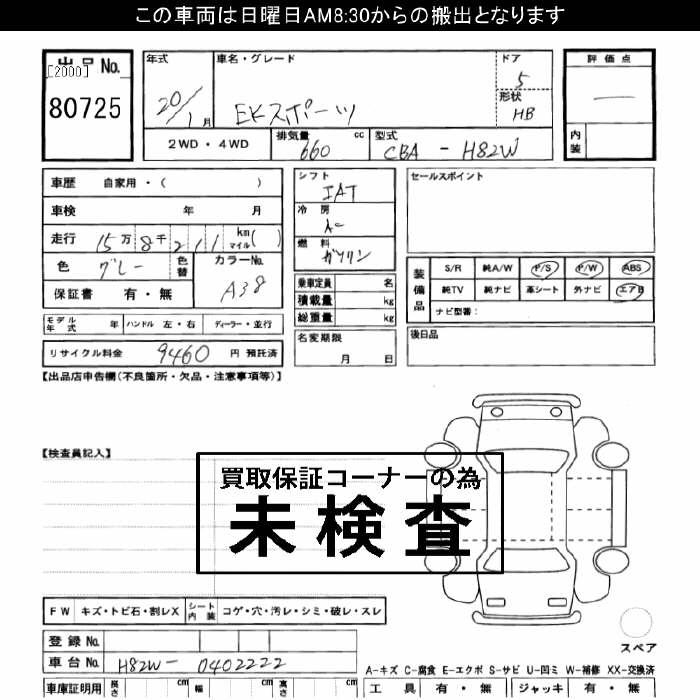 この車両は日曜日AM8:30からの搬出となります
出品 No.
[2000]
80725
年式
20/1月
車名・グレード
EKスポーツ
ドア
5
形状
HB
評価点
内装
2WD・4WD
排気量
660 cc
型式
CBA - H82W
車歴 自家用・( )
車検 年 月
走行 15万 8千 211 km マイル( )
色 グレー 色替
カラーNo.
A38
保証書 有・無
シフト
IAT
冷房
燃料
ガソリン
セールスポイント
乗車定員 名
積載量 kg
総重量 kg
装備品
S/R 純A/W P/S P/W ABS
純TV 純ナビ 革シート 外ナビ エアB
ナビ型番:
モデル年式 年 ハンドル 左・右 ディーラー・並行
リサイクル料金 9460 円 預託済
名変期限
月 日
後日品
【出品店申告欄(不良箇所・欠品・注意事項等)】
【検査員記入】
買取保証コーナーの為
未検査
FW キズ・トビ石・割レX シート内装 コゲ・穴・汚レ・シミ・破レ・スレ
スペア
登録 No.
車台 No. H82W- 0402222
A-キズ C-腐食 E-エクボ S-サビ U-凹ミ W-補修 XX-交換済
車庫証明用 長さ cm 幅 cm 高さ cm
工具 有・無 ジャッキ 有・無